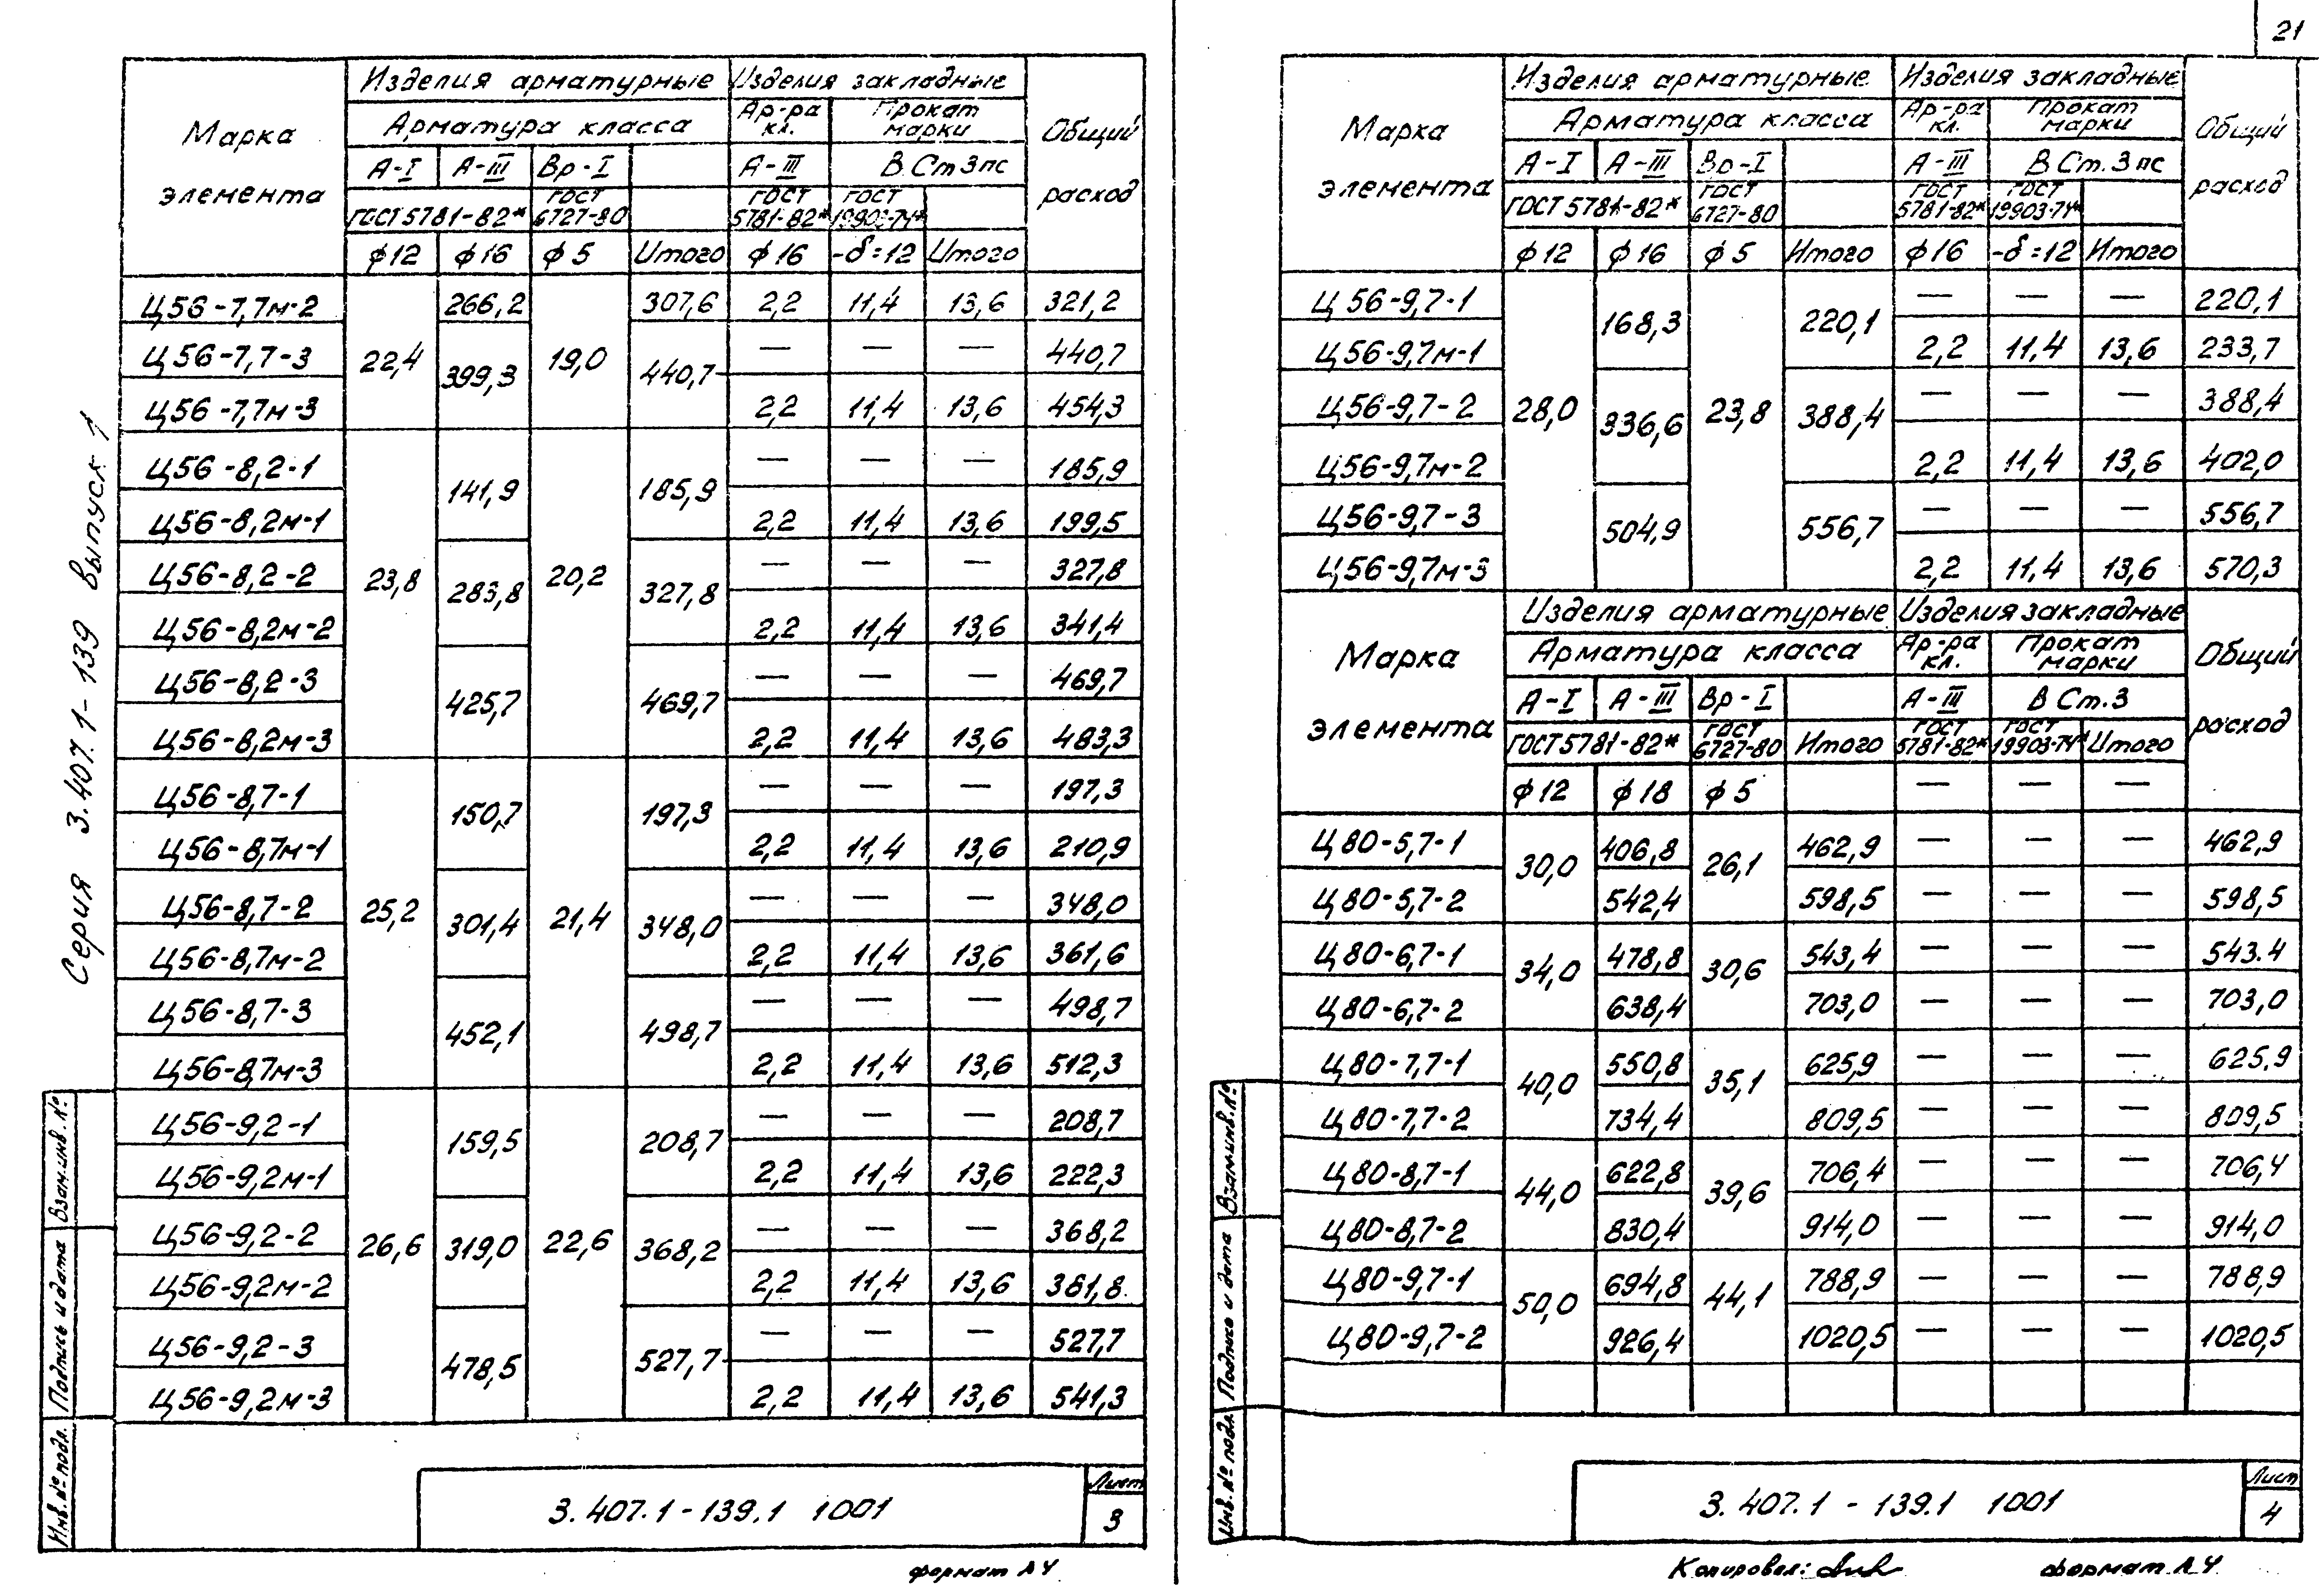 21
Серия 3.407.1-139 Выпуск 1
Марка элемента
Изделия арматурные Изделия закладные Общий расход
Арматура класса Ар-ра кл. Прокат марки
А-I А-III Вр-I А-III В Ст 3пс
ГОСТ 5781-82* ГОСТ 6727-80 ГОСТ 5781-82* ГОСТ 19903-74*
ф12 ф16 ф5 Итого ф16 -δ=12 Итого
Ц56-7,7м-2 22,4 266,2 19,0 307,6 2,2 11,4 13,6 321,2
Ц56-7,7-3 399,3 440,7 — — — 440,7
Ц56-7,7м-3 2,2 11,4 13,6 454,3
Ц56-8,2-1 23,8 141,9 20,2 185,9 — — — 185,9
Ц56-8,2м-1 2,2 11,4 13,6 199,5
Ц56-8,2-2 283,8 327,8 — — — 327,8
Ц56-8,2м-2 2,2 11,4 13,6 341,4
Ц56-8,2-3 425,7 469,7 — — — 469,7
Ц56-8,2м-3 2,2 11,4 13,6 483,3
Ц56-8,7-1 25,2 150,7 21,4 197,3 — — — 197,3
Ц56-8,7м-1 2,2 11,4 13,6 210,9
Ц56-8,7-2 301,4 348,0 — — — 348,0
Ц56-8,7м-2 2,2 11,4 13,6 361,6
Ц56-8,7-3 452,1 498,7 — — — 498,7
Ц56-8,7м-3 2,2 11,4 13,6 512,3
Ц56-9,2-1 26,6 159,5 22,6 208,7 — — — 208,7
Ц56-9,2м-1 2,2 11,4 13,6 222,3
Ц56-9,2-2 319,0 368,2 — — — 368,2
Ц56-9,2м-2 2,2 11,4 13,6 381,8
Ц56-9,2-3 478,5 527,7 — — — 527,7
Ц56-9,2м-3 2,2 11,4 13,6 541,3
Инв. № подл. Подпись и дата Взам.инв.№
3.407.1-139.1 1001
Лист
3
формат А4
Марка элемента
Изделия арматурные Изделия закладные Общий расход
Арматура класса Ар-ра кл. Прокат марки
А-I А-III Вр-I А-III В Ст. 3 пс
ГОСТ 5781-82* ГОСТ 6727-80 ГОСТ 5781-82* ГОСТ 19903-74*
ф12 ф16 ф5 Итого ф16 -δ=12 Итого
Ц56-9,7-1 28,0 168,3 23,8 220,1 — — — 220,1
Ц56-9,7м-1 2,2 11,4 13,6 233,7
Ц56-9,7-2 336,6 388,4 — — — 388,4
Ц56-9,7м-2 2,2 11,4 13,6 402,0
Ц56-9,7-3 504,9 556,7 — — — 556,7
Ц56-9,7м-3 2,2 11,4 13,6 570,3
Марка элемента
Изделия арматурные Изделия закладные Общий расход
Арматура класса Ар-ра кл. Прокат марки
А-I А-III Вр-I А-III В Ст.3
ГОСТ 5781-82* ГОСТ 6727-80 Итого ГОСТ 5781-82* ГОСТ 19903-74* Итого
ф12 ф18 ф5 — — —
Ц80-5,7-1 30,0 406,8 26,1 462,9 — — — 462,9
Ц80-5,7-2 542,4 598,5 — — — 598,5
Ц80-6,7-1 34,0 478,8 30,6 543,4 — — — 543.4
Ц80-6,7-2 638,4 703,0 — — — 703,0
Ц80-7,7-1 40,0 550,8 35,1 625,9 — — — 625,9
Ц80-7,7-2 734,4 809,5 — — — 809,5
Ц80-8,7-1 44,0 622,8 39,6 706,4 — — — 706,4
Ц80-8,7-2 830,4 914,0 — — — 914,0
Ц80-9,7-1 50,0 694,8 44,1 788,9 — — — 788,9
Ц80-9,7-2 926,4 1020,5 — — — 1020,5
Инв. № подл. Подпись и дата Взам.инв.№
3.407.1-139.1 1001
Лист
4
Копировал: формат А4